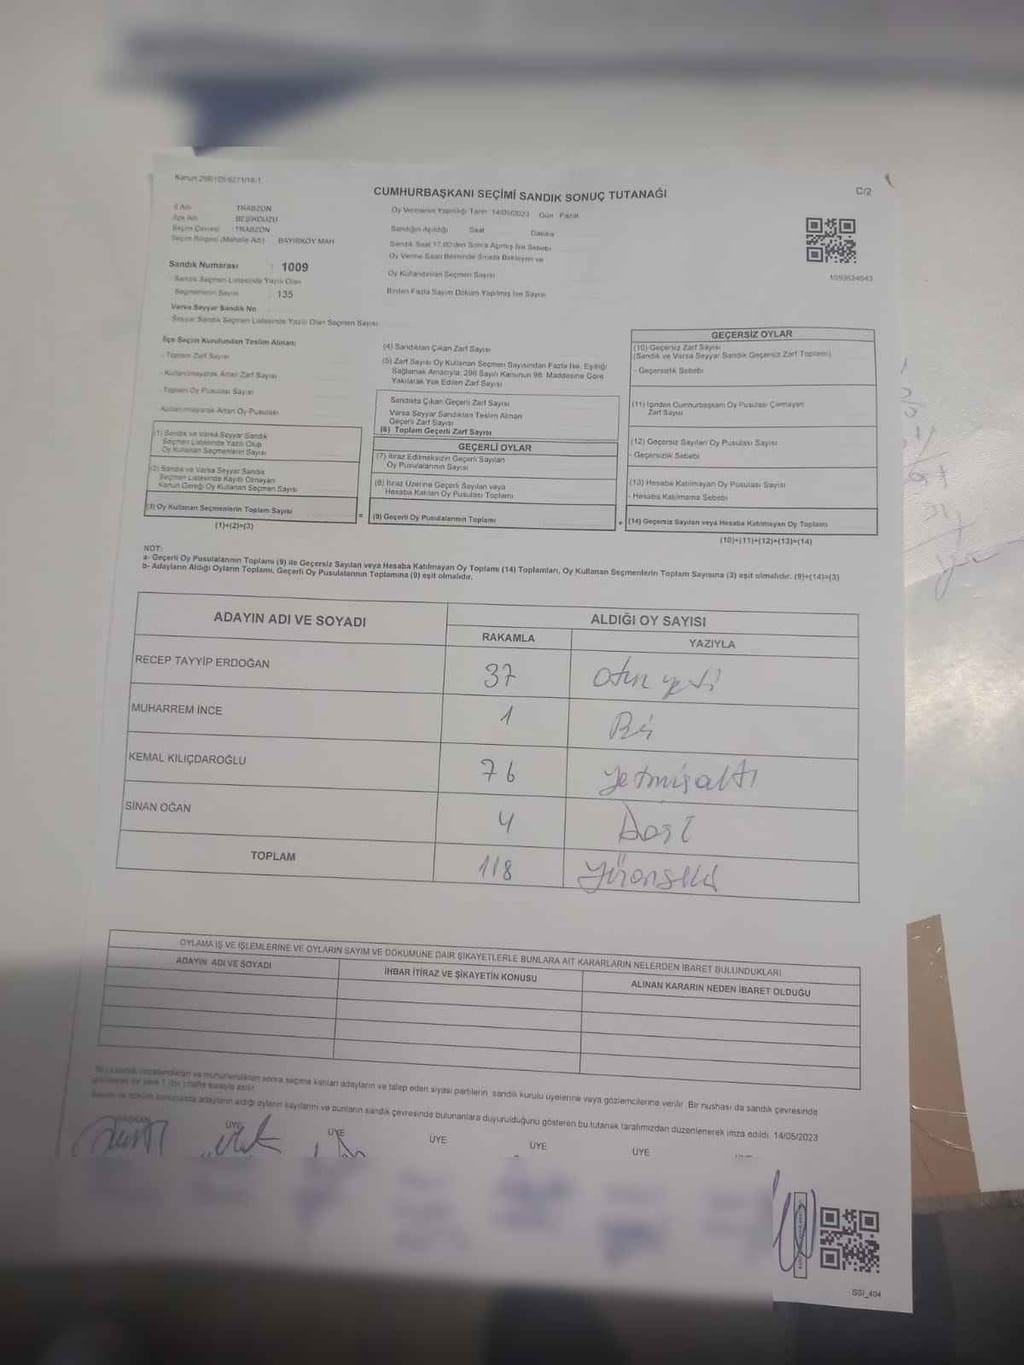 CUMHURBAŞKANI SEÇİMİ SANDIK SONUÇ TUTANAĞI
C/2
İl Adı : TRABZON
İlçe Adı : BEŞİKDÜZÜ
Seçim Çevresi : TRABZON
Seçim Bölgesi (Mahalle Adı) : BAYIRKÖY MAH
Oy Vermenin Yapıldığı Tarih: 14/05/2023 Gün : Pazar
Sandığın Açıldığı Saat Dakika
Sandık Saat 17.00'den Sonra Açılmış İse Sebebi
Oy Verme Saati Bitiminde Sırada Bekleyen ve
Oy Kullandırılan Seçmen Sayısı
Birden Fazla Sayım Döküm Yapılmış İse Sayısı
Sandık Numarası : 1009
Sandık Seçmen Listesinde Yazılı Olan
Seçmenlerin Sayısı : 135
Varsa Seyyar Sandık No
Seyyar Sandık Seçmen Listesinde Yazılı Olan Seçmen Sayısı
İlçe Seçim Kurulundan Teslim Alınan;
- Toplam Zarf Sayısı
- Kullanılmayarak Artan Zarf Sayısı
- Toplam Oy Pusulası Sayısı
- Kullanılmayarak Artan Oy Pusulası
(1) Sandık ve Varsa Seyyar Sandık
Seçmen Listesinde Yazılı Olup
Oy Kullanan Seçmenlerin Sayısı
(2) Sandık ve Varsa Seyyar Sandık
Seçmen Listesinde Kayıtlı Olmayan
Kanun Gereği Oy Kullanan Seçmen Sayısı
(3) Oy Kullanan Seçmenlerin Toplam Sayısı
(1)+(2)=(3)
(4) Sandıktan Çıkan Zarf Sayısı
(5) Zarf Sayısı Oy Kullanan Seçmen Sayısından Fazla İse, Eşitliği
Sağlamak Amacıyla; 298 Sayılı Kanunun 98. Maddesine Göre
Yakılarak Yok Edilen Zarf Sayısı
Sandıkta Çıkan Geçerli Zarf Sayısı
Varsa Seyyar Sandıktan Teslim Alınan
Geçerli Zarf Sayısı
(6) Toplam Geçerli Zarf Sayısı
GEÇERLİ OYLAR
(7) İtiraz Edilmeksizin Geçerli Sayılan
Oy Pusulalarının Sayısı
(8) İtiraz Üzerine Geçerli Sayılan veya
Hesaba Katılan Oy Pusulası Toplamı
= (9) Geçerli Oy Pusulalarının Toplamı
GEÇERSİZ OYLAR
(10) Geçersiz Zarf Sayısı
(Sandık ve Varsa Seyyar Sandık Geçersiz Zarf Toplamı)
- Geçersizlik Sebebi
(11) İçinden Cumhurbaşkanı Oy Pusulası Çıkmayan
Zarf Sayısı
(12) Geçersiz Sayılan Oy Pusulası Sayısı
- Geçersizlik Sebebi
(13) Hesaba Katılmayan Oy Pusulası Sayısı
- Hesaba Katılmama Sebebi
+ (14) Geçersiz Sayılan veya Hesaba Katılmayan Oy Toplamı
(10)+(11)+(12)+(13)=(14)
NOT:
a- Geçerli Oy Pusulalarının Toplamı (9) ile Geçersiz Sayılan veya Hesaba Katılmayan Oy Toplamı (14) Toplamları, Oy Kullanan Seçmenlerin Toplam Sayısına (3) eşit olmalıdır. (9)+(14)=(3)
b- Adayların Aldığı Oyların Toplamı, Geçerli Oy Pusulalarının Toplamına (9) eşit olmalıdır.
ADAYIN ADI VE SOYADI ALDIĞI OY SAYISI
RAKAMLA YAZIYLA
RECEP TAYYİP ERDOĞAN 37 otuz yedi
MUHARREM İNCE 1 Bir
KEMAL KILIÇDAROĞLU 76 yetmişaltı
SİNAN OĞAN 4 Dört
TOPLAM 118 yüzonsekiz
OYLAMA İŞ VE İŞLEMLERİNE VE OYLARIN SAYIM VE DÖKÜMÜNE DAİR ŞİKAYETLERLE BUNLARA AİT KARARLARIN NELERDEN İBARET BULUNDUKLARI
ADAYIN ADI VE SOYADI İHBAR İTİRAZ VE ŞİKAYETİN KONUSU ALINAN KARARIN NEDEN İBARET OLDUĞU
ÜYE ÜYE ÜYE ÜYE ÜYE
SSI_404